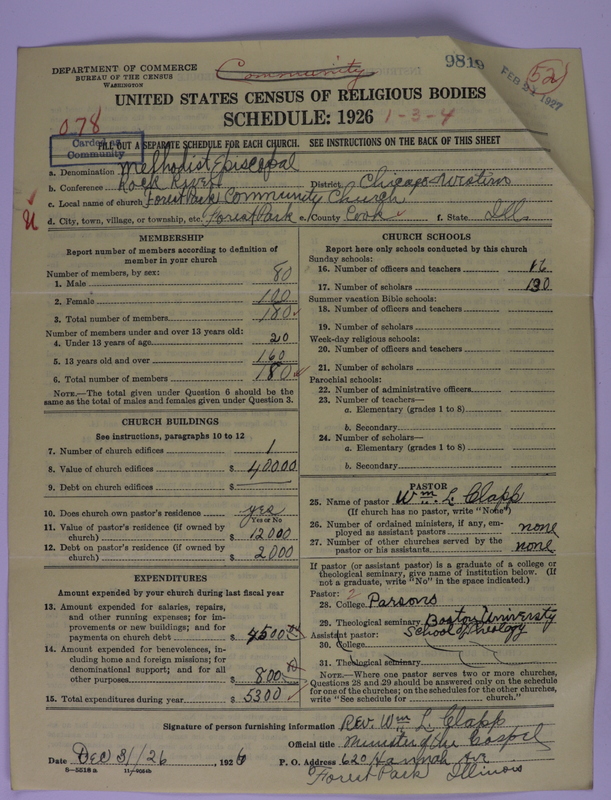 DEPARTMENT OF COMMERCE
BUREAU OF THE CENSUS
WASHINGTON
Community
9819
FEB 21 1927
52
UNITED STATES CENSUS OF RELIGIOUS BODIES
SCHEDULE: 1926 1-3-4
078
Carded as
Community
FILL OUT A SEPARATE SCHEDULE FOR EACH CHURCH. SEE INSTRUCTIONS ON THE BACK OF THIS SHEET
a. Denomination Methodist Episcopal
b. Conference Rock River District Chicago Western
c. Local name of church Forest Park Community Church
d. City, town, village, or township, etc. Forest Park e. County Cook f. State Ill.
MEMBERSHIP
Report number of members according to definition of
member in your church
Number of members, by sex:
1. Male 80
2. Female 100
3. Total number of members 180
Number of members under and over 13 years old:
4. Under 13 years of age 20
5. 13 years old and over 160
6. Total number of members 180
NOTE.—The total given under Question 6 should be the
same as the total of males and females given under Question 3.
CHURCH BUILDINGS
See instructions, paragraphs 10 to 12
7. Number of church edifices 1
8. Value of church edifices $ 40000
9. Debt on church edifices $
10. Does church own pastor's residence yes
Yes or No
11. Value of pastor's residence (if owned by
church) $ 12000
12. Debt on pastor's residence (if owned by
church) $ 2000
EXPENDITURES
Amount expended by your church during last fiscal year
13. Amount expended for salaries, repairs,
and other running expenses; for im-
provements or new buildings; and for
payments on church debt $ 4500
14. Amount expended for benevolences, in-
cluding home and foreign missions; for
denominational support; and for all
other purposes $ 800
15. Total expenditures during year $ 5300
CHURCH SCHOOLS
Report here only schools conducted by this church
Sunday schools:
16. Number of officers and teachers 16
17. Number of scholars 190
Summer vacation Bible schools:
18. Number of officers and teachers
19. Number of scholars
Week-day religious schools:
20. Number of officers and teachers
21. Number of scholars
Parochial schools:
22. Number of administrative officers
23. Number of teachers—
a. Elementary (grades 1 to 8)
b. Secondary
24. Number of scholars—
a. Elementary (grades 1 to 8)
b. Secondary
PASTOR
25. Name of pastor Wm. L Clapp
(If church has no pastor, write "None")
26. Number of ordained ministers, if any, em-
ployed as assistant pastors none
27. Number of other churches served by the
pastor or his assistants none
If pastor (or assistant pastor) is a graduate of a college or
theological seminary, give name of institution below. (If
not a graduate, write "No" in the space indicated.)
Pastor: 2
28. College Parsons
29. Theological seminary Boston University
School of Theology
Assistant pastor:
30. College
31. Theological seminary
NOTE.—Where one pastor serves two or more churches,
Questions 28 and 29 should be answered only on the schedule
for one of the churches; on the schedules for the other churches,
write "See schedule for church."
Signature of person furnishing information Rev. Wm L. Clapp
Official title Minister of the Gospel
Date Dec 31/26, 1926 P. O. Address 620 Hannah Ave
Forest Park Illinois